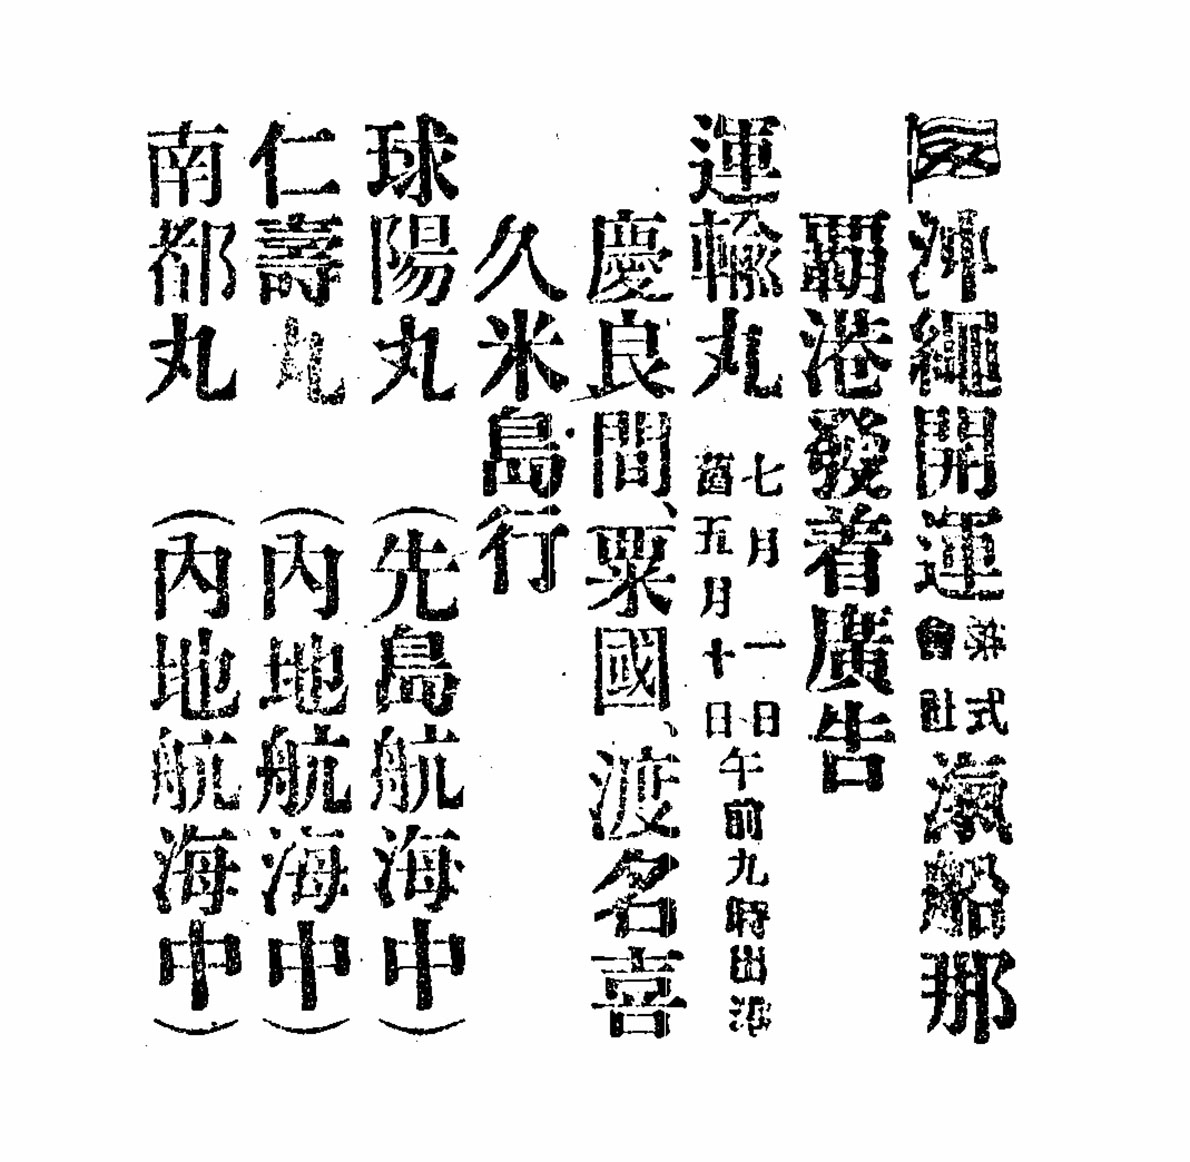 沖繩開運株式會社滊船那
覇港發着廣告
運輸丸 七月一日 舊五月十日 午前九時出港
慶良間、粟國、渡名喜
久米島行
球陽丸 (先島航海中)
仁壽丸 (內地航海中)
南都丸 (內地航海中)